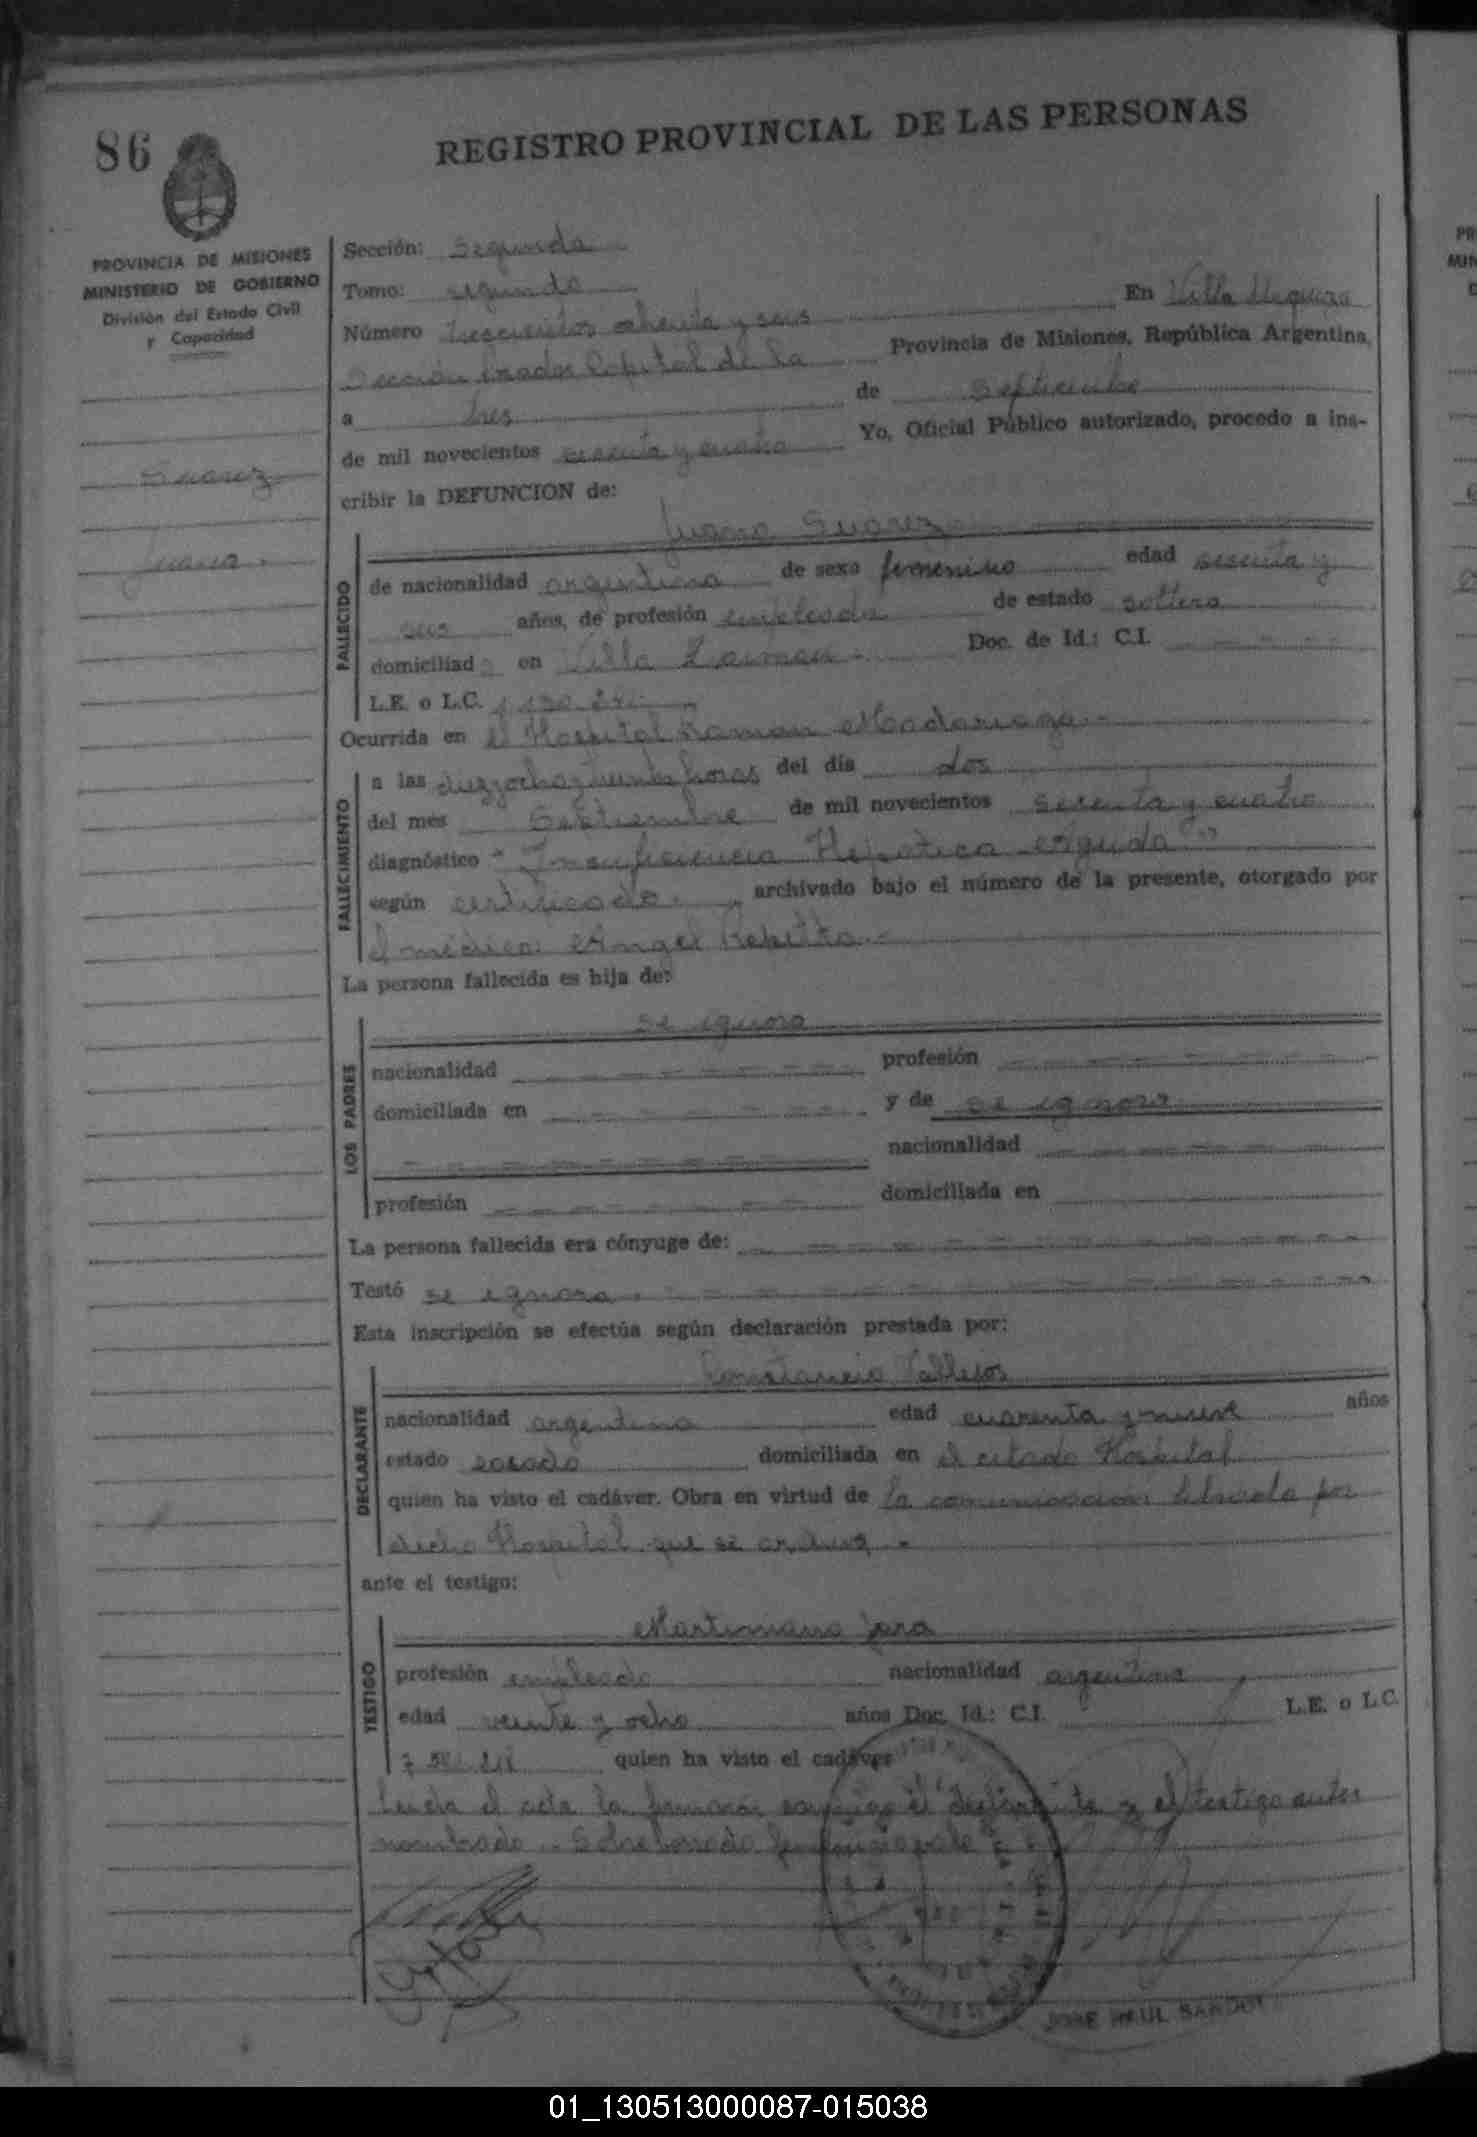 86
REGISTRO PROVINCIAL DE LAS PERSONAS
PROVINCIA DE MISIONES
MINISTERIO DE GOBIERNO
División del Estado Civil
y Capacidad
Suarez
Juana.
Sección: Segunda
Tomo: segundo
Número Trescientos ochenta y seis En Villa Urquiza
Sección Posadas Capital de la Provincia de Misiones, República Argentina,
a tres de Septiembre
de mil novecientos sesenta y cuatro Yo, Oficial Público autorizado, procedo a ins-
cribir la DEFUNCION de:
Juana Suarez
FALLECIDO
de nacionalidad argentina de sexo femenino edad sesenta y
seis años, de profesión empleada de estado soltera
domiciliad a en Villa Doc. de Id.: C.I.
L.E. o L.C.
Ocurrida en el Hospital Ramon Madariaga.-
FALLECIMIENTO
a las diezyocho y treinta horas del día dos
del mes Septiembre de mil novecientos sesenta y cuatro
diagnóstico "Insuficiencia Hepatica Aguda"
según certificado. archivado bajo el número de la presente, otorgado por
el médico: Angel Repetto.-
La persona fallecida es hija de:
se ignora
LOS PADRES
nacionalidad profesión
domiciliada en y de se ignora
nacionalidad
profesión domiciliada en
La persona fallecida era cónyuge de:
Testó se ignora.
Esta inscripción se efectúa según declaración prestada por:
Constancio Vallejos
DECLARANTE
nacionalidad argentina edad cuarenta y nueve años
estado casado domiciliada en el citado Hospital
quien ha visto el cadáver. Obra en virtud de la comunicación librada por
dicho Hospital que se archiva.-
ante el testigo:
Martiniano Jara
TESTIGO
profesión empleado nacionalidad argentina
edad veinte y ocho años Doc. Id.: C.I. L.E. o L.C.
quien ha visto el cadáver
Leida el acta la firmaron conmigo el declarante y el testigo antes
nombrado.- Sobreborrado femenino vale
JOSE RAUL
01_130513000087-015038